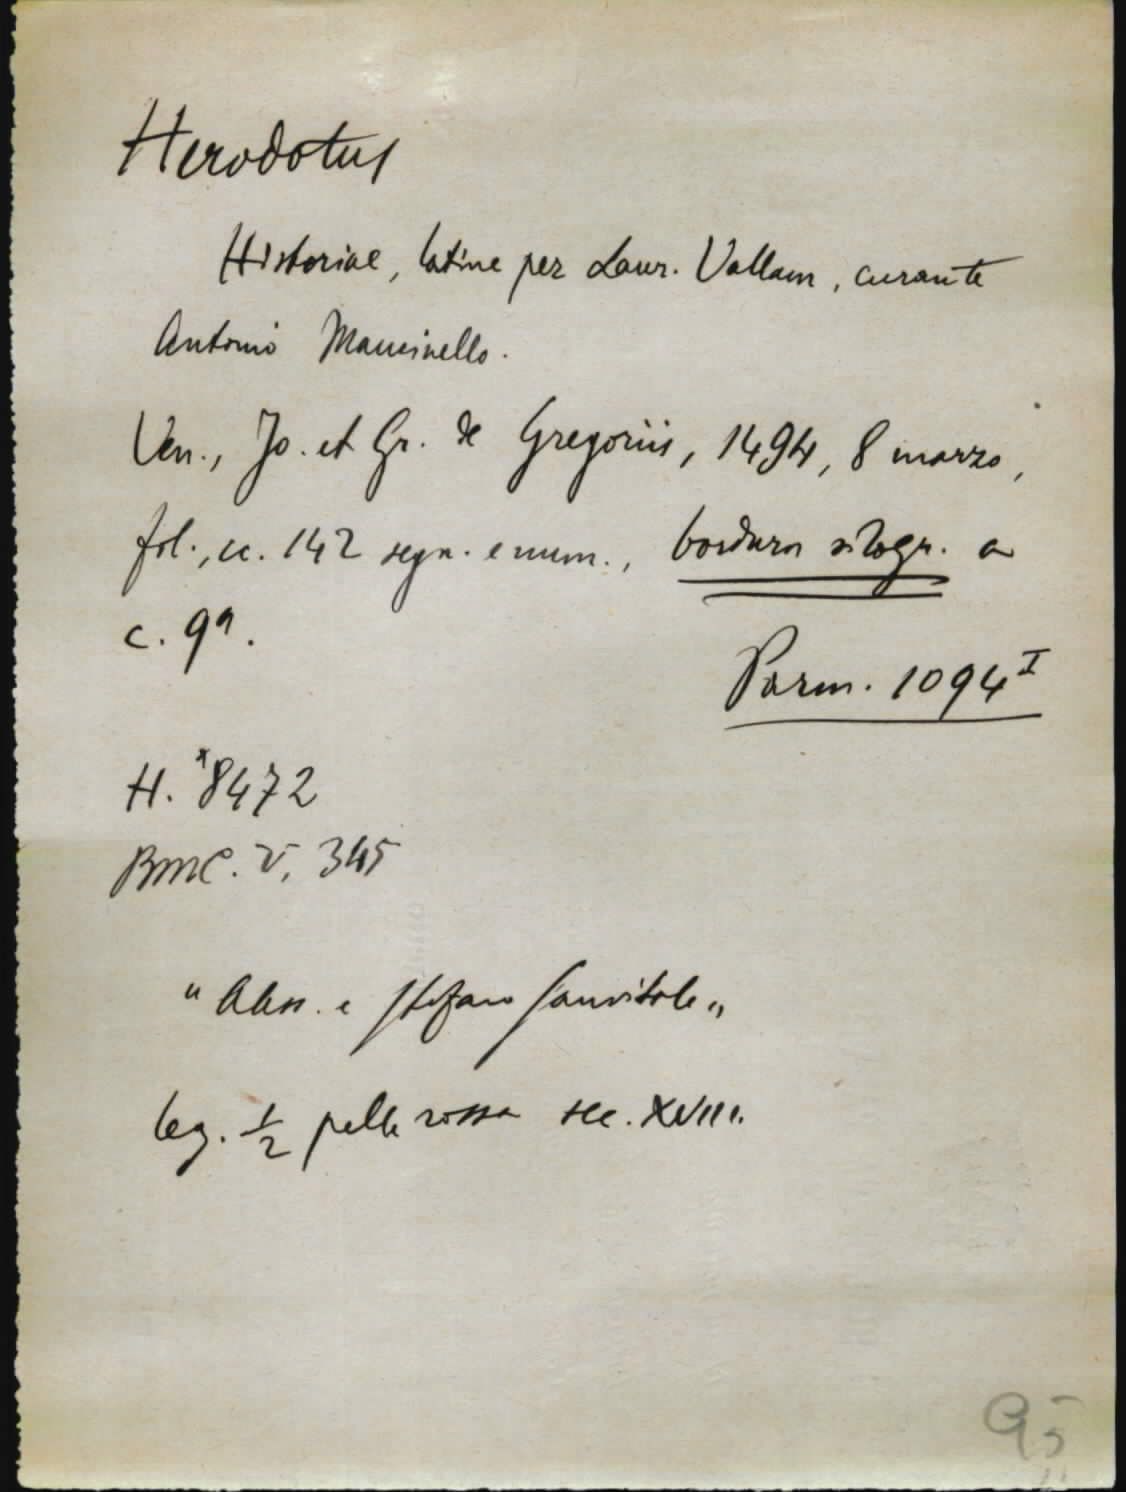 Herodotus
Historiae, latine per Laur. Vallam, curante
Antonio Mancinello.
Ven., Jo. et Gr. de Gregoriis, 1494, 8 marzo,
fol., cc. 142 segn. e num., bordura silogr. a
c. 9a.
Parm. 1094 I
H. *8472
BMC. V, 345
"Aless. e Stefano Sanvitale"
leg. 1/2 pelle rossa sec. XVIII.